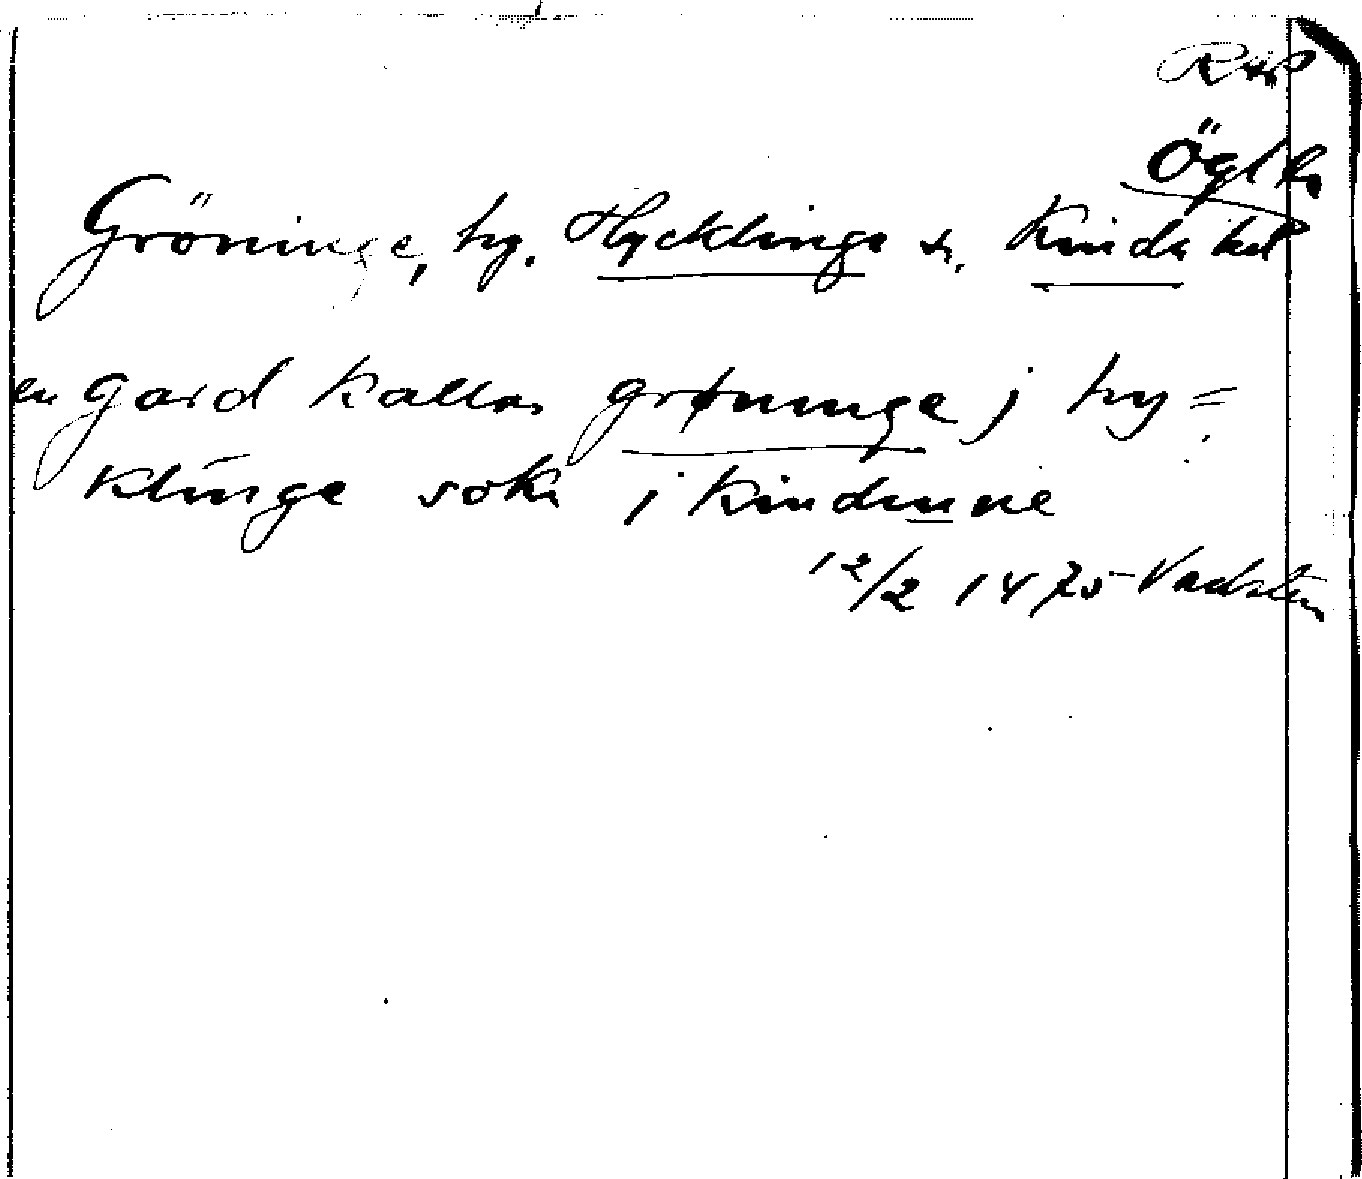 RAP
Ögl
Gröninge, by. Hycklinge sn. Kinda hd
en gard kallas grøninge j hy=
klinge sokn j kindunne
12/2 1475 Vadstena